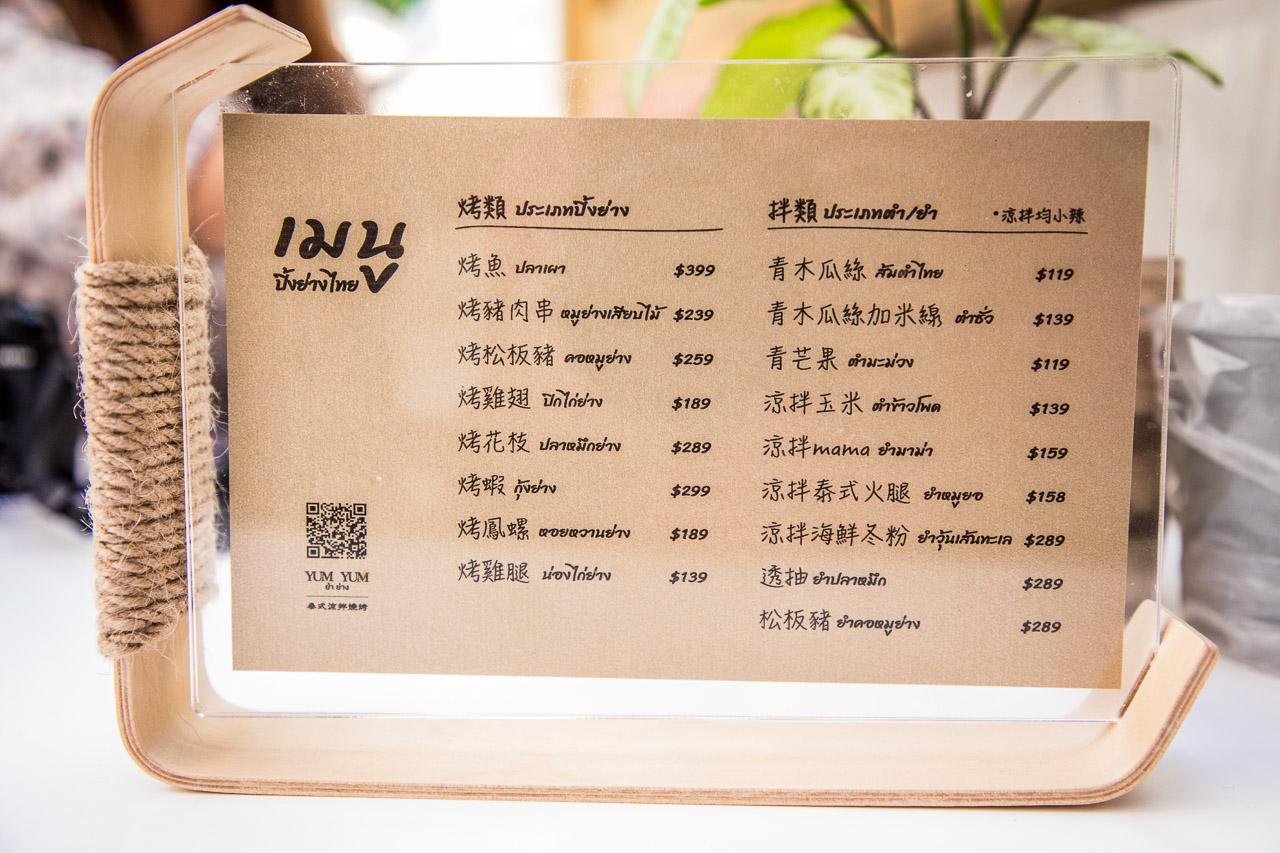 เมนู
ปิ้งย่างไทย
YUM YUM
ยำ ย่าง
泰式涼拌燒烤
烤類 ประเภทปิ้งย่าง
烤魚 ปลาเผา $399
烤豬肉串 หมูย่างเสียบไม้ $239
烤松板豬 คอหมูย่าง $259
烤雞翅 ปีกไก่ย่าง $189
烤花枝 ปลาหมึกย่าง $289
烤蝦 กุ้งย่าง $299
烤鳳螺 หอยหวานย่าง $189
烤雞腿 น่องไก่ย่าง $139
拌類 ประเภทตำ/ยำ •涼拌均小辣
青木瓜絲 ส้มตำไทย $119
青木瓜絲加米線 ตำซั่ว $139
青芒果 ตำมะม่วง $119
涼拌玉米 ตำข้าวโพด $139
涼拌mama ยำมาม่า $159
涼拌泰式火腿 ยำหมูยอ $158
涼拌海鮮冬粉 ยำวุ้นเส้นทะเล $289
透抽 ยำปลาหมึก $289
松板豬 ยำคอหมูย่าง $289